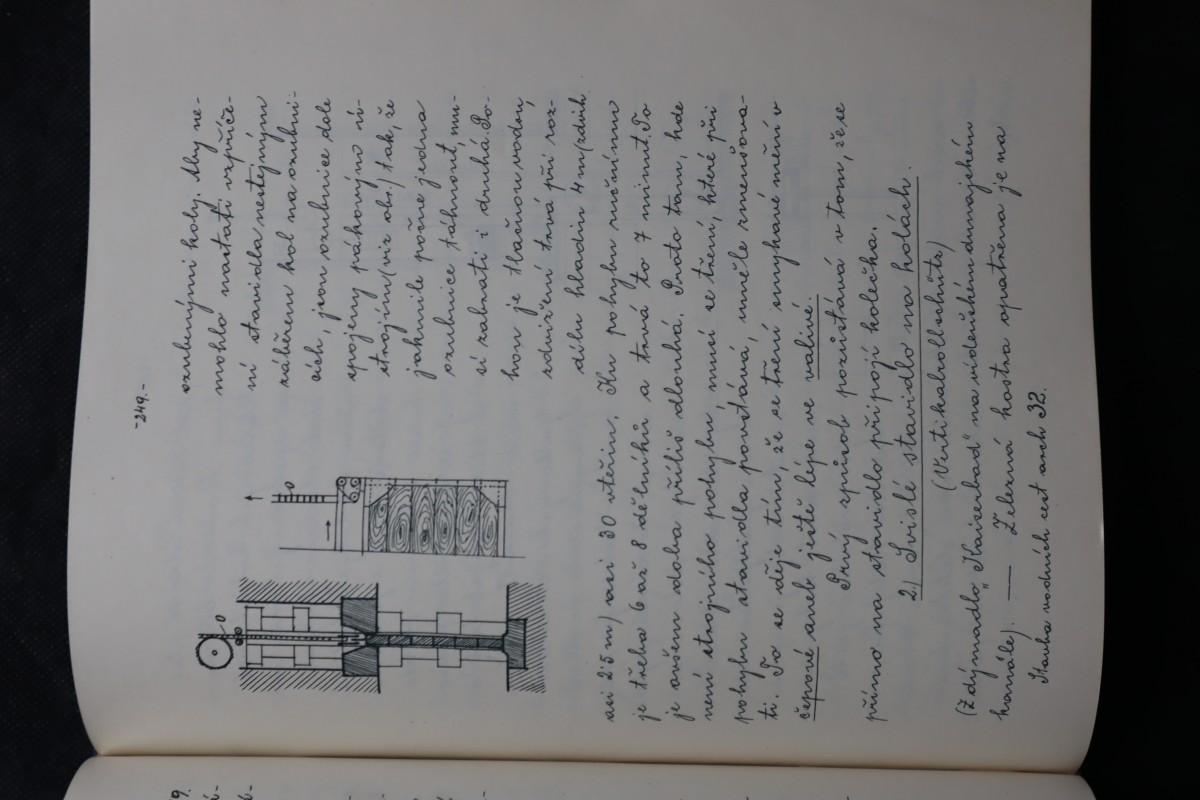 -249.-
ozubenými koly. Aby ne-
mohlo nastati vzpříče-
ní stavidla nestejným
záběrem kol na ozubni-
cích, jsou ozubnice dole
spojeny pákovým sí-
strojím (viz obr.) tak, že
jakmile počne jedna
ozubnice táhnout, mu-
sí zabrati i druhá. Po-
hon je tlakovou vodou,
zdvižení trvá při roz-
dílu hladin 4 m (zdvih
asi 2·5 m) asi 30 vteřin. Ku pohybu ručnímu
je třeba 6 až 8 dělníků a trvá to 7 minut. To
je ovšem doba příliš dlouhá. Proto tam, kde
není strojního pohybu musí se tření, které při
pohybu stavidla povstává, uměle zmenšova-
ti. To se děje tím, že se tření smykané mění v
čepové aneb ještě lépe ve valivé.
Prvý způsob pozůstává v tom, že se
přímo na stavidlo připojí kolečka.
2.) Svislé stavidlo na kolách.
(Vertikalrollschütz)
(Zdymadlo „Kaiserbad" na vídeňském dunajském
kanále). — Železná kostra opatřena je na
Stavba vodních cest arch 32.
O
O
9.